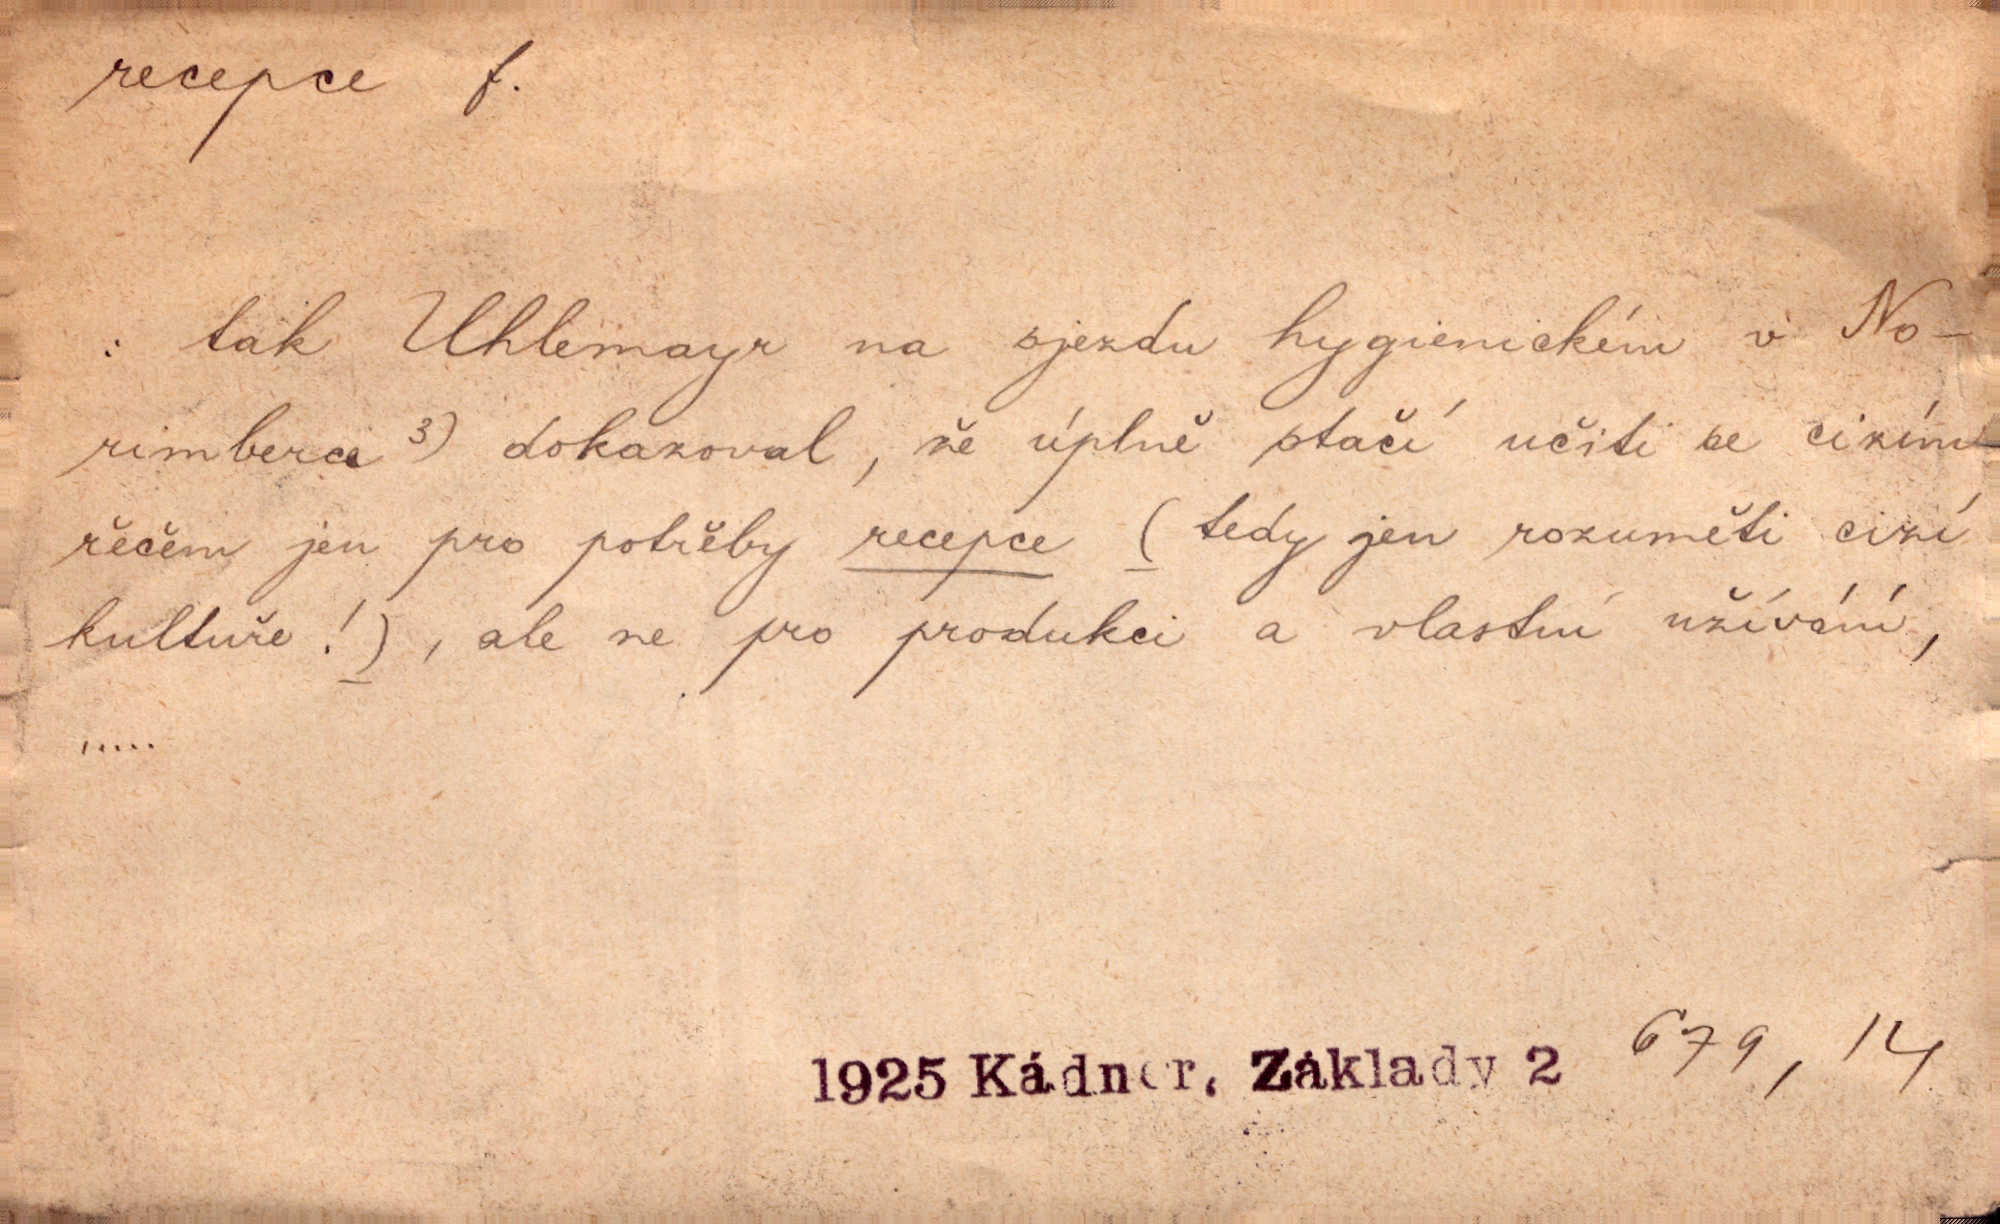 recepce f.
: tak Uhlemayr na sjezdu hygienickém v No-
rimberce 3) dokazoval, že úplně stačí učiti se cizím
řečem jen pro potřeby recepce (tedy jen rozuměti cizí
kultuře!), ale ne pro produkci a vlastní užívání,
.....
1925 Kádner, Základy 2 679, 14